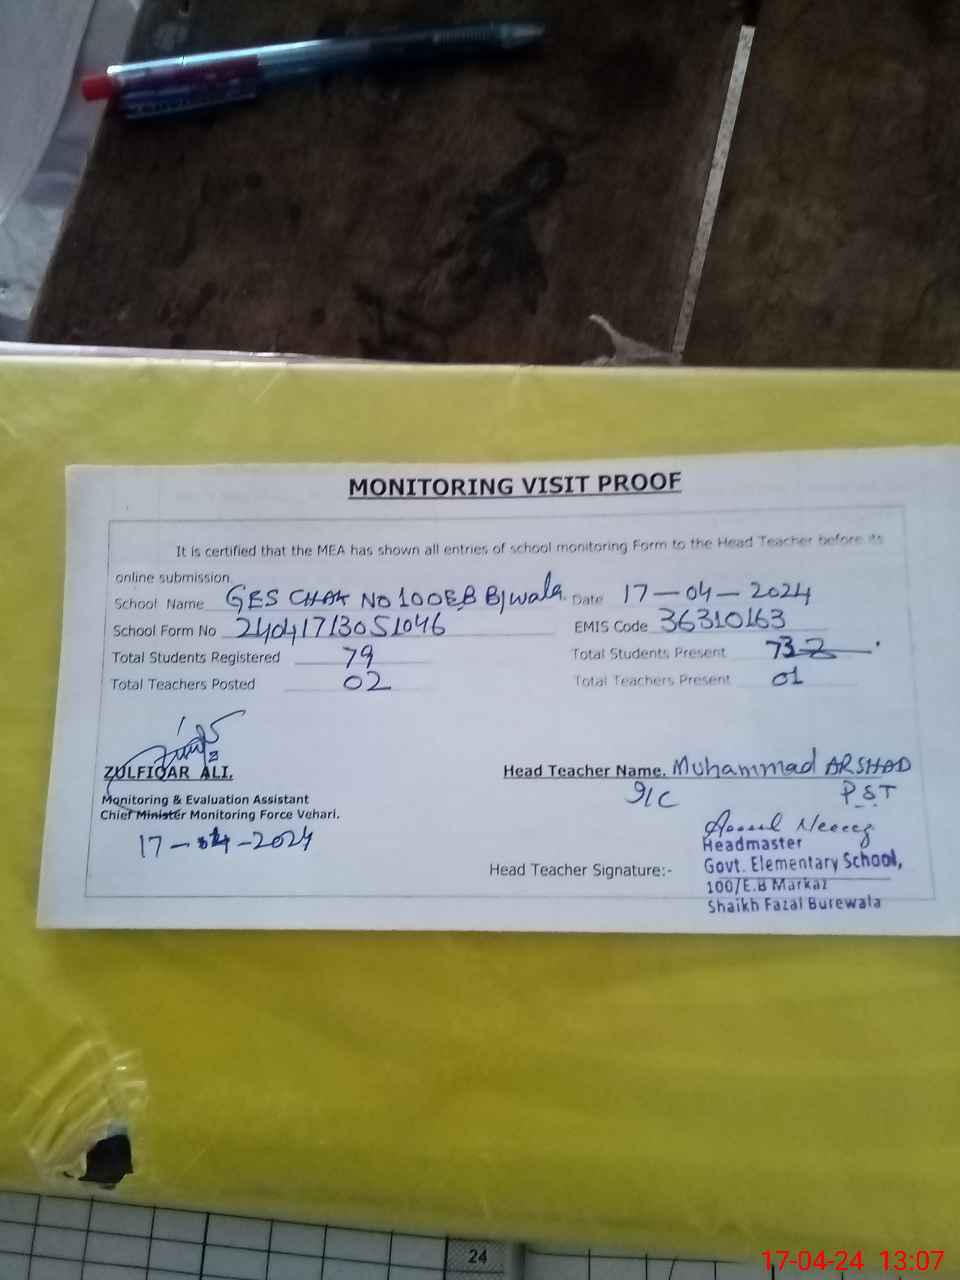 MONITORING VISIT PROOF
It is certified that the MEA has shown all entries of school monitoring Form to the Head Teacher before its
online submission
School Name GES CHAK NO 100EB B/wala. Date 17-04-2024
School Form No 24041713051046 EMIS Code 36310163
Total Students Registered 79 Total Students Present 73
Total Teachers Posted 02 Total Teachers Present 01
ZULFIQAR ALI.
Monitoring & Evaluation Assistant
Chief Minister Monitoring Force Vehari.
17-04-2024
Head Teacher Name. Muhammad ARSHAD
I/C P.S.T
Head Teacher Signature:-
Headmaster
Govt. Elementary School,
100/E.B Markaz
Shaikh Fazal Burewala
24
17-04-24 13:07